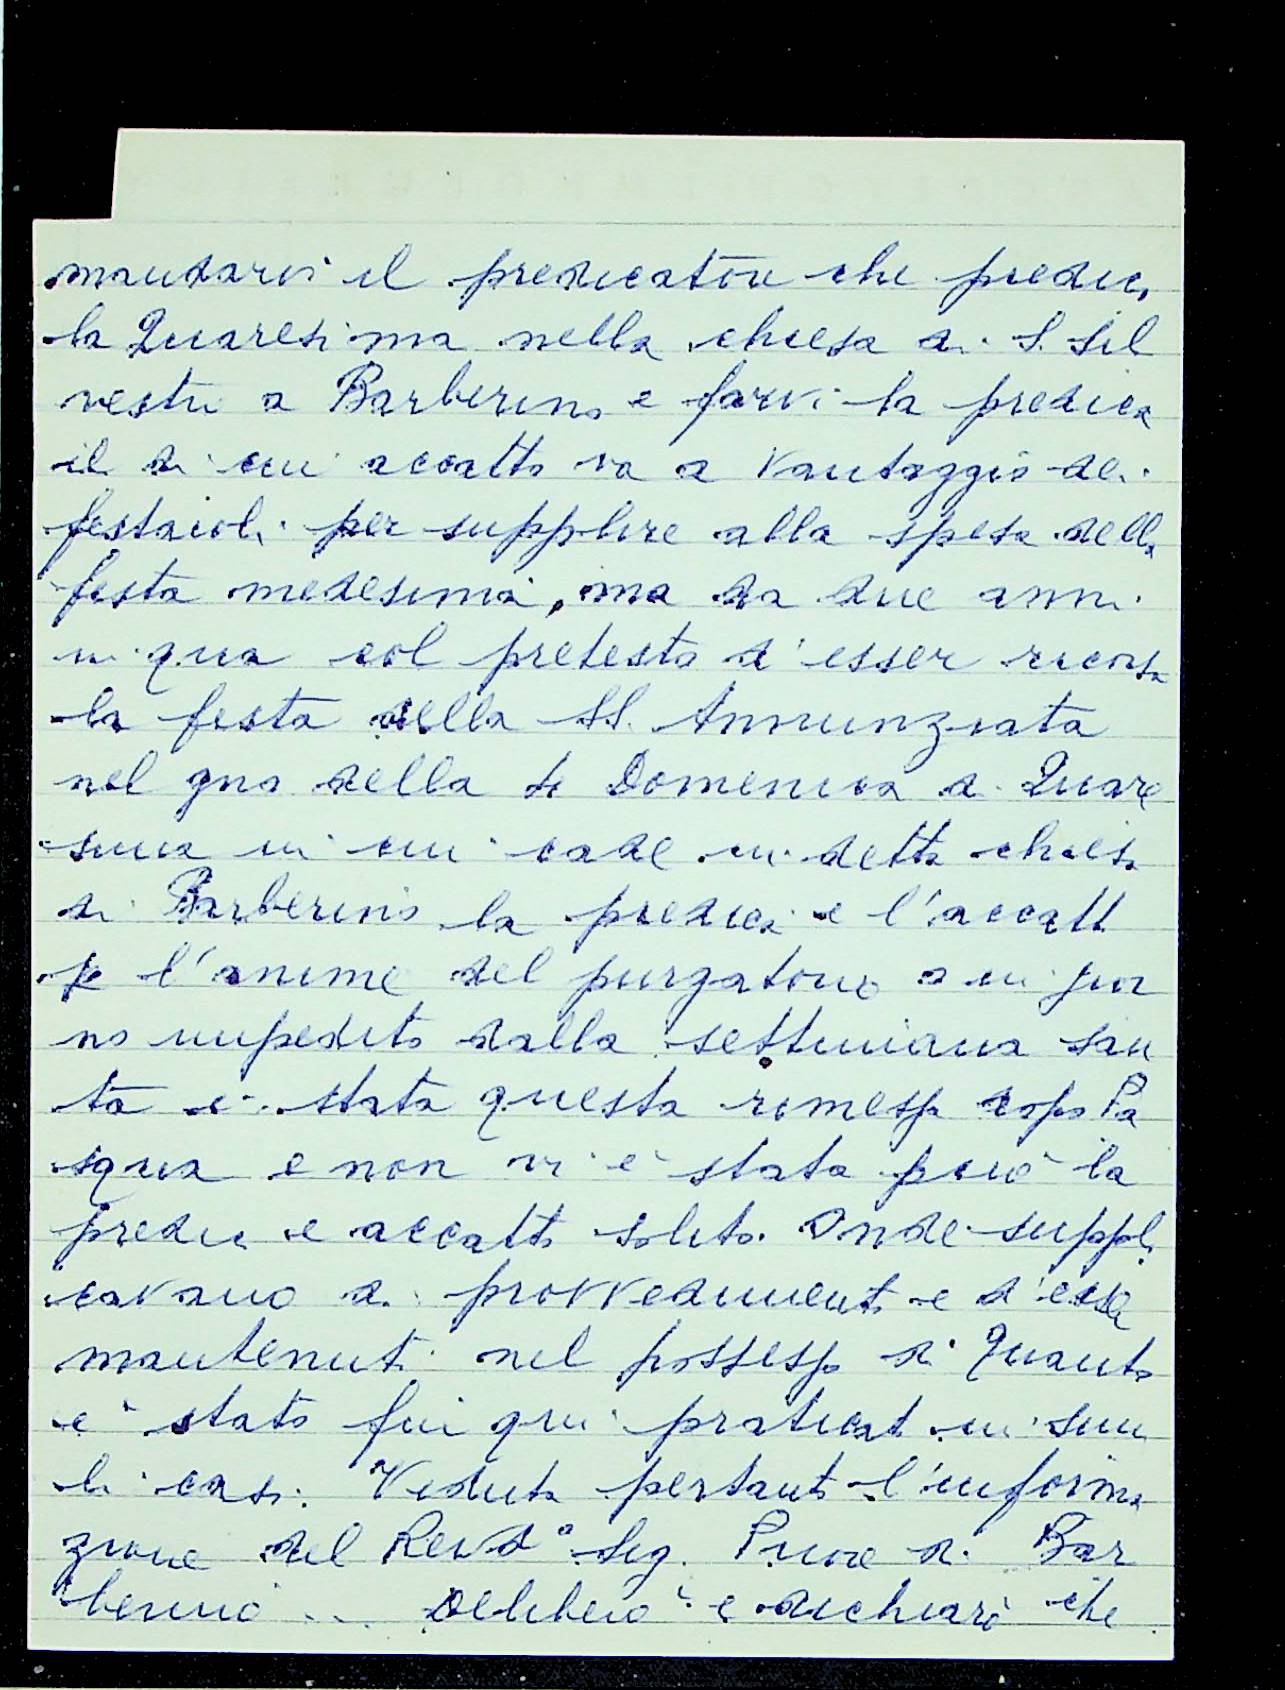 mandarvi il predicatore che predica
la Quaresima nella chiesa di S. Sil
vestro a Barberino e farvi la predica
il di cui accatto va a vantaggio dei
festaioli per supplire alla spesa della
festa medesima, ma da due anni
in qua col pretesto d'esser ricorsa
la festa della SS. Annunziata
nel gno della 4 Domenica di Quare
sima in cui cade in detta chiesa
di Barberino la predica e l'accatto
p l'anime del purgatorio o in gior
no impedito dalla settimana san
ta è stata questa rimessa dopo Pa
squa e non vi è stata però la
predica e accatto solito. Onde suppli
cavano di provvedimento e d'esser
mantenuti nel possesso di quanto
è stato fin qui praticato in simi
li casi. Veduta pertanto l'informa
zione del Revdo Sig. Priore di Bar
berino ... Deliberò e dichiarò che